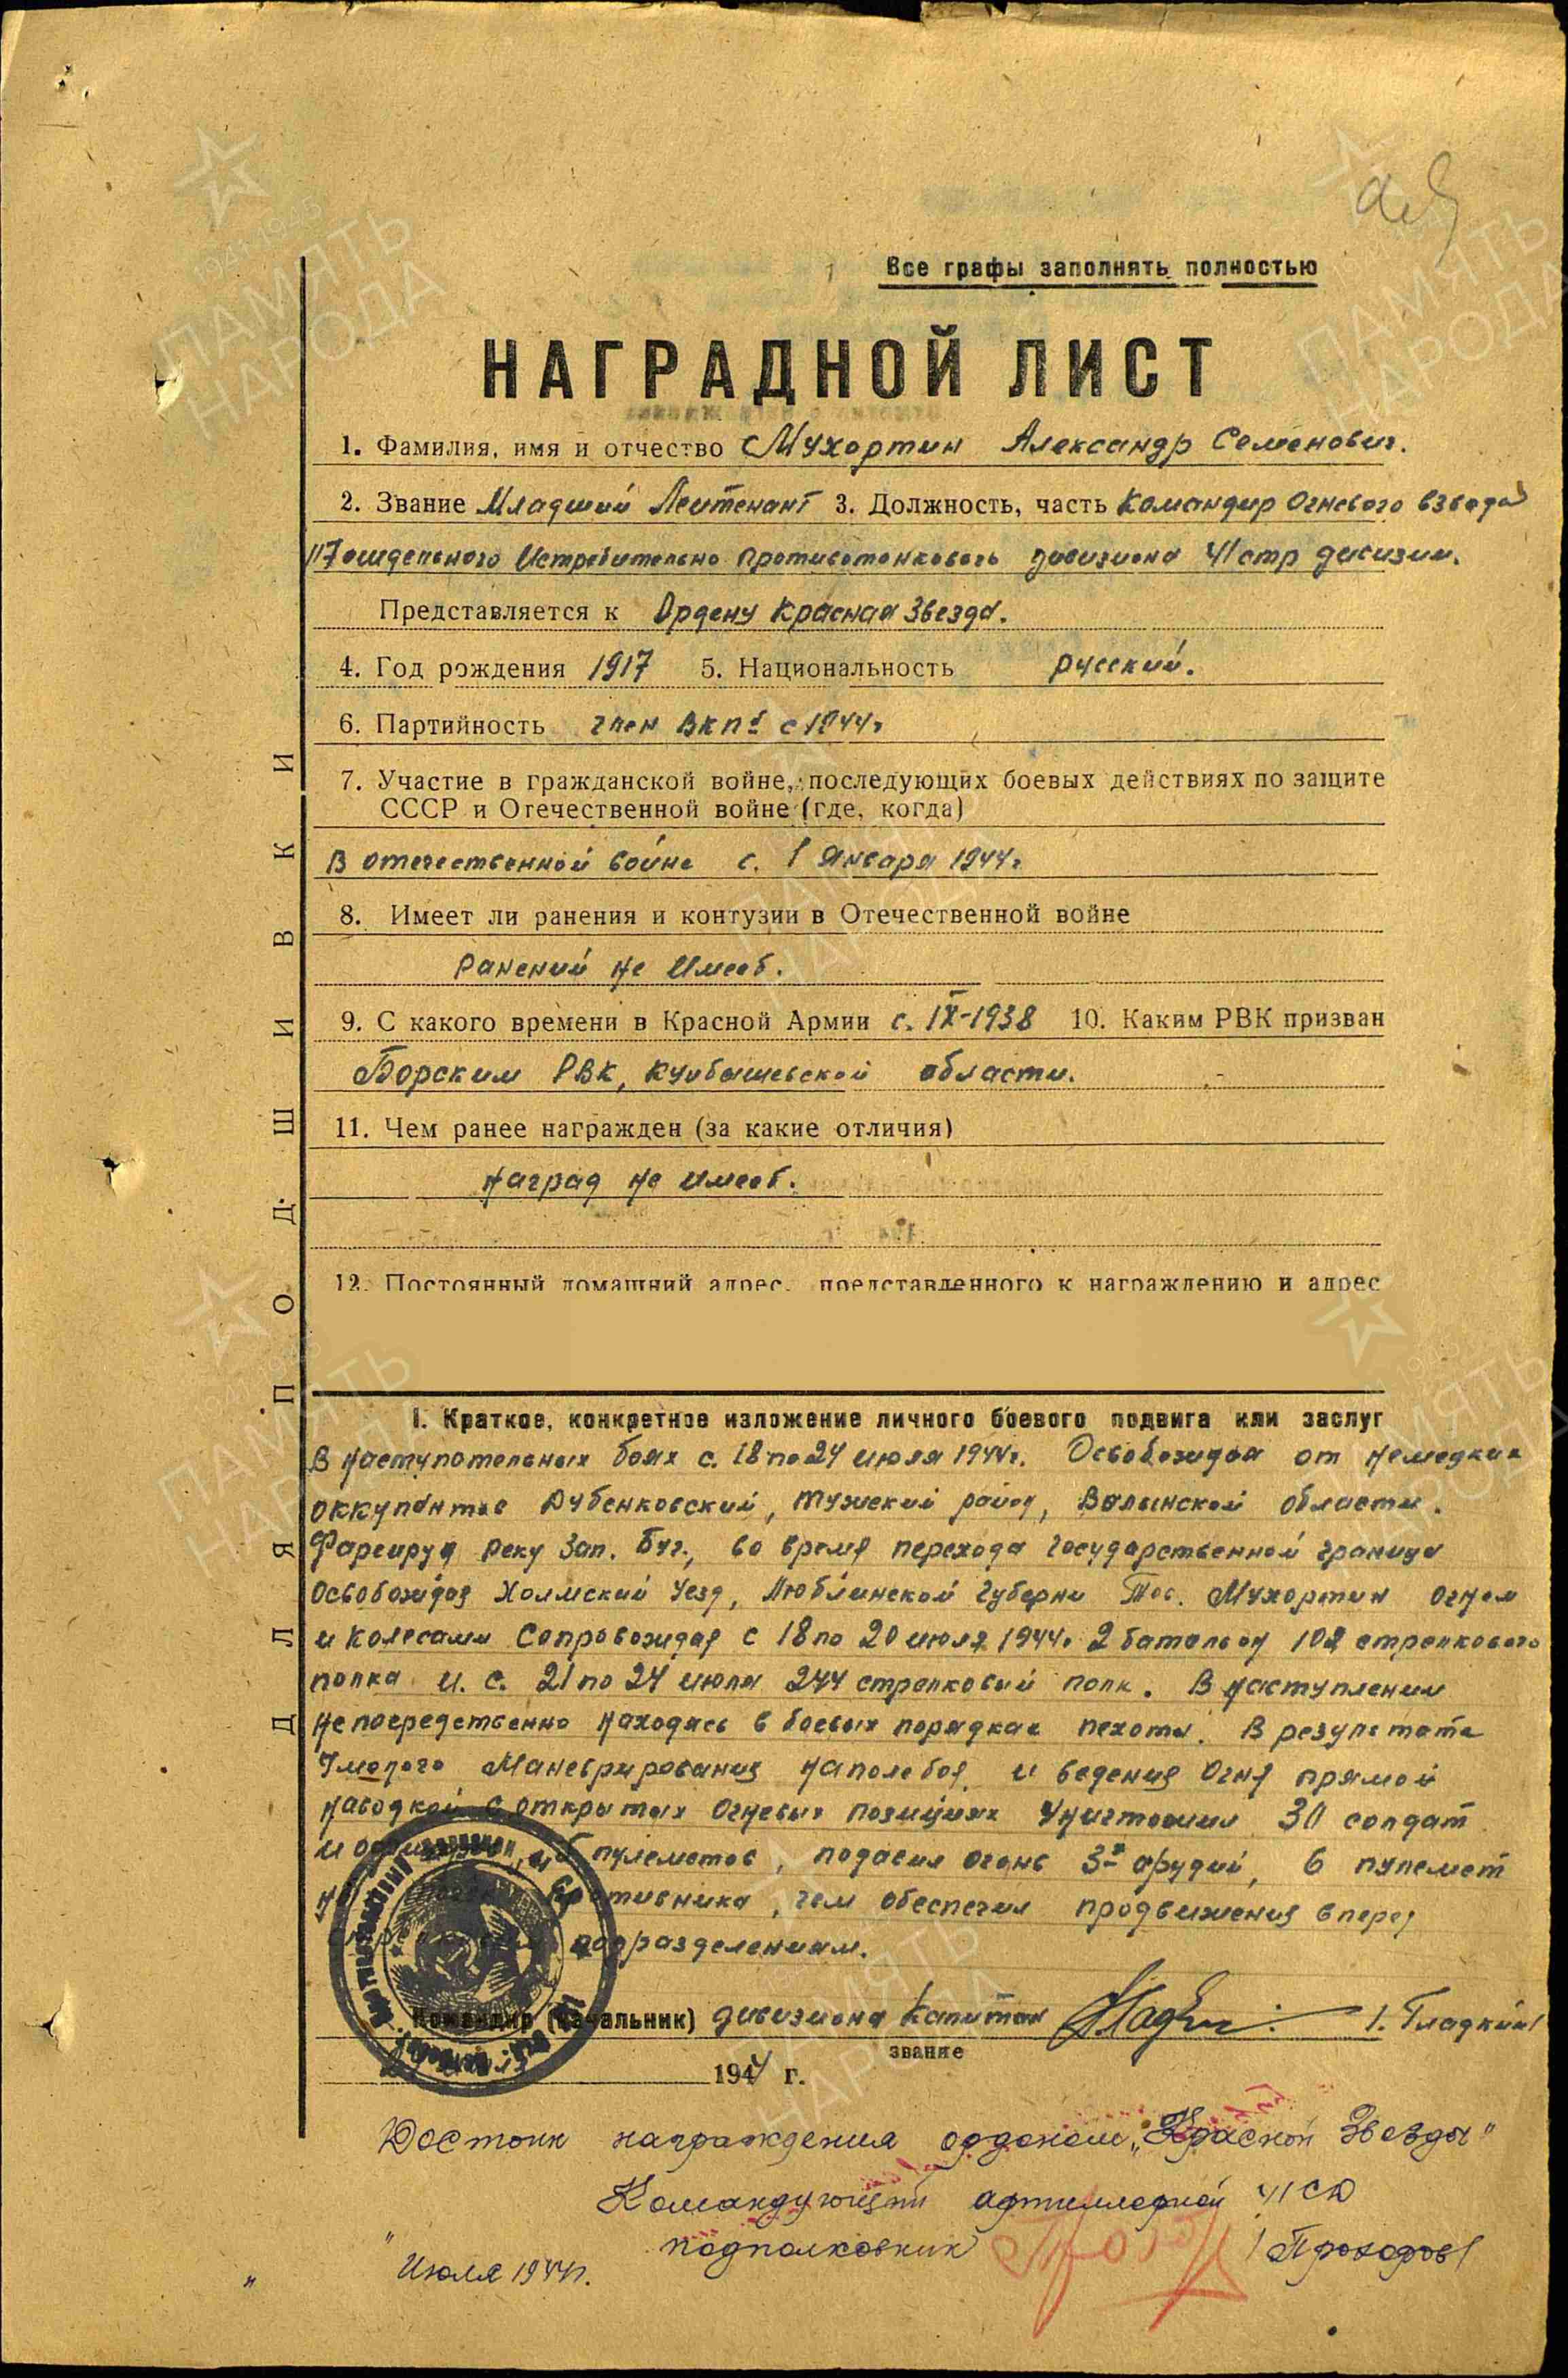 Все графы заполнять полностью
НАГРАДНОЙ ЛИСТ
1. Фамилия, имя и отчество Мухортин Александр Семенович.
2. Звание Младший Лейтенант 3. Должность, часть Командир Огневого взвода
117 отдельного Истребительно противотанкового дивизиона 41 стр дивизии.
Представляется к Ордену Красная Звезда.
4. Год рождения 1917 5. Национальность русский.
6. Партийность член ВКПб с 1944г
7. Участие в гражданской войне, последующих боевых действиях по защите
СССР и Отечественной войне (где, когда)
В отечественной войне с. 1 Января 1944г
8. Имеет ли ранения и контузии в Отечественной войне
Ранений не Имеет.
9. С какого времени в Красной Армии с. IX-1938 10. Каким РВК призван
Борским РВК, Куйбышевской области.
11. Чем ранее награжден (за какие отличия)
Наград не имеет.
12. Постоянный домашний адрес, представленного к награждению и адрес
ДЛЯ ПОДШИВКИ
I. Краткое, конкретное изложение личного боевого подвига или заслуг
В Наступательных боях с. 18 по 24 июля 1944г. Освобождая от Немецких
оккупантов Дубенковский, Тужский район, Валынской области.
Фарсируя реку Зап. Буг., во время перехода Государственной границы
Освобождая Холмский Уезд, Люблинской Губерни Тов. Мухортин огнем
и колесами Сопровождая с 18 по 20 июля 1944г 2 батальон 102 стрелкового
полка и. с. 21 по 24 июля 244 стрелковый полк. В Наступлении
Непосредственно Находясь в боевых порядках пехоты. В результате
Умелого Маневрирования Наполебоя и ведения Огня прямой
Наводкой с открытых Огневых позициях Уничтожил 30 солдат
и офицеров, пулеметов, подавил огонь 3х орудий, 6 пулемет
противника, чем обеспечил продвижения вперед
подразделениям.
Командир (начальник) дивизиона Капитан /. Гладкий/
звание
1944 г.
Достоин награждения орденом „Красной Звезды"
Командующий артиллерией 41 СД
подполковник /Прохоров/
" " Июля 1944г.
ПАМЯТЬ НАРОДА
1941-1945